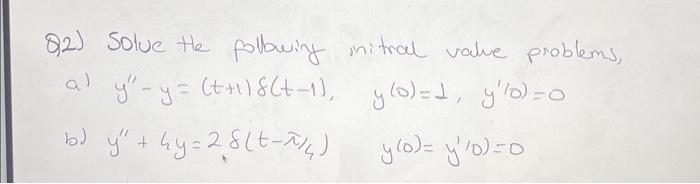 Q2) Solve the following initial value problems,
a) y'' - y = (t+1) δ(t-1), y(0)=1, y'(0)=0
b) y'' + 4y = 2 δ(t-π/4) y(0)= y'(0)=0